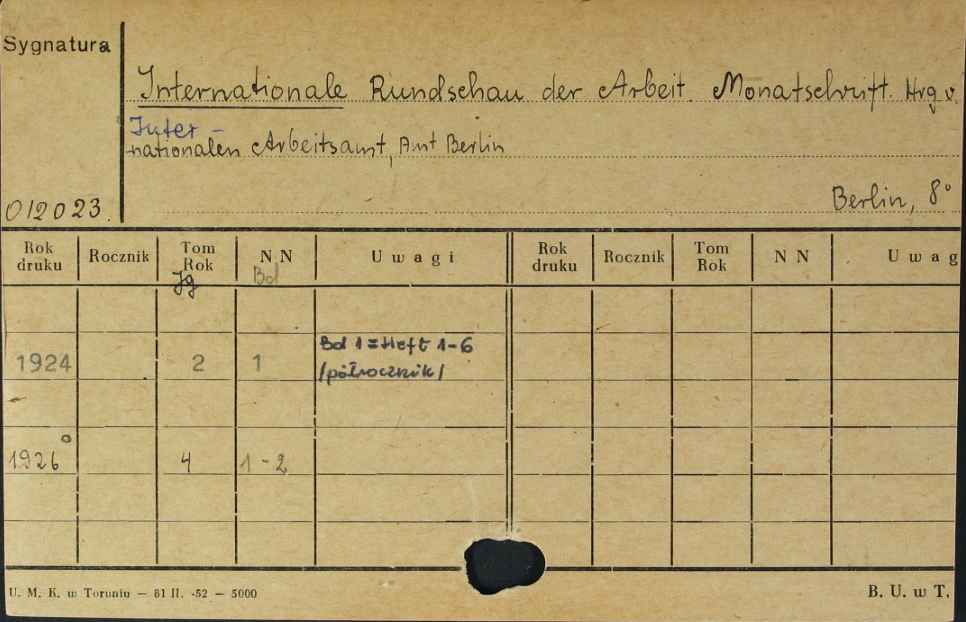 Sygnatura
Internationale Rundschau der Arbeit. Monatschrift. Hrg v.
Inter-
nationalen Arbeitsamt, Amt Berlin
012023.
Berlin, 8°
Rok druku Rocznik Tom Rok N N Uwagi Rok druku Rocznik Tom Rok N N Uwag
Jg Bd
1924 2 1 Bd 1 = Heft 1-6
/półrocznik/
1926° 4 1-2
U. M. K. w Toruniu — 81 II. -52 — 5000
B. U. w T.